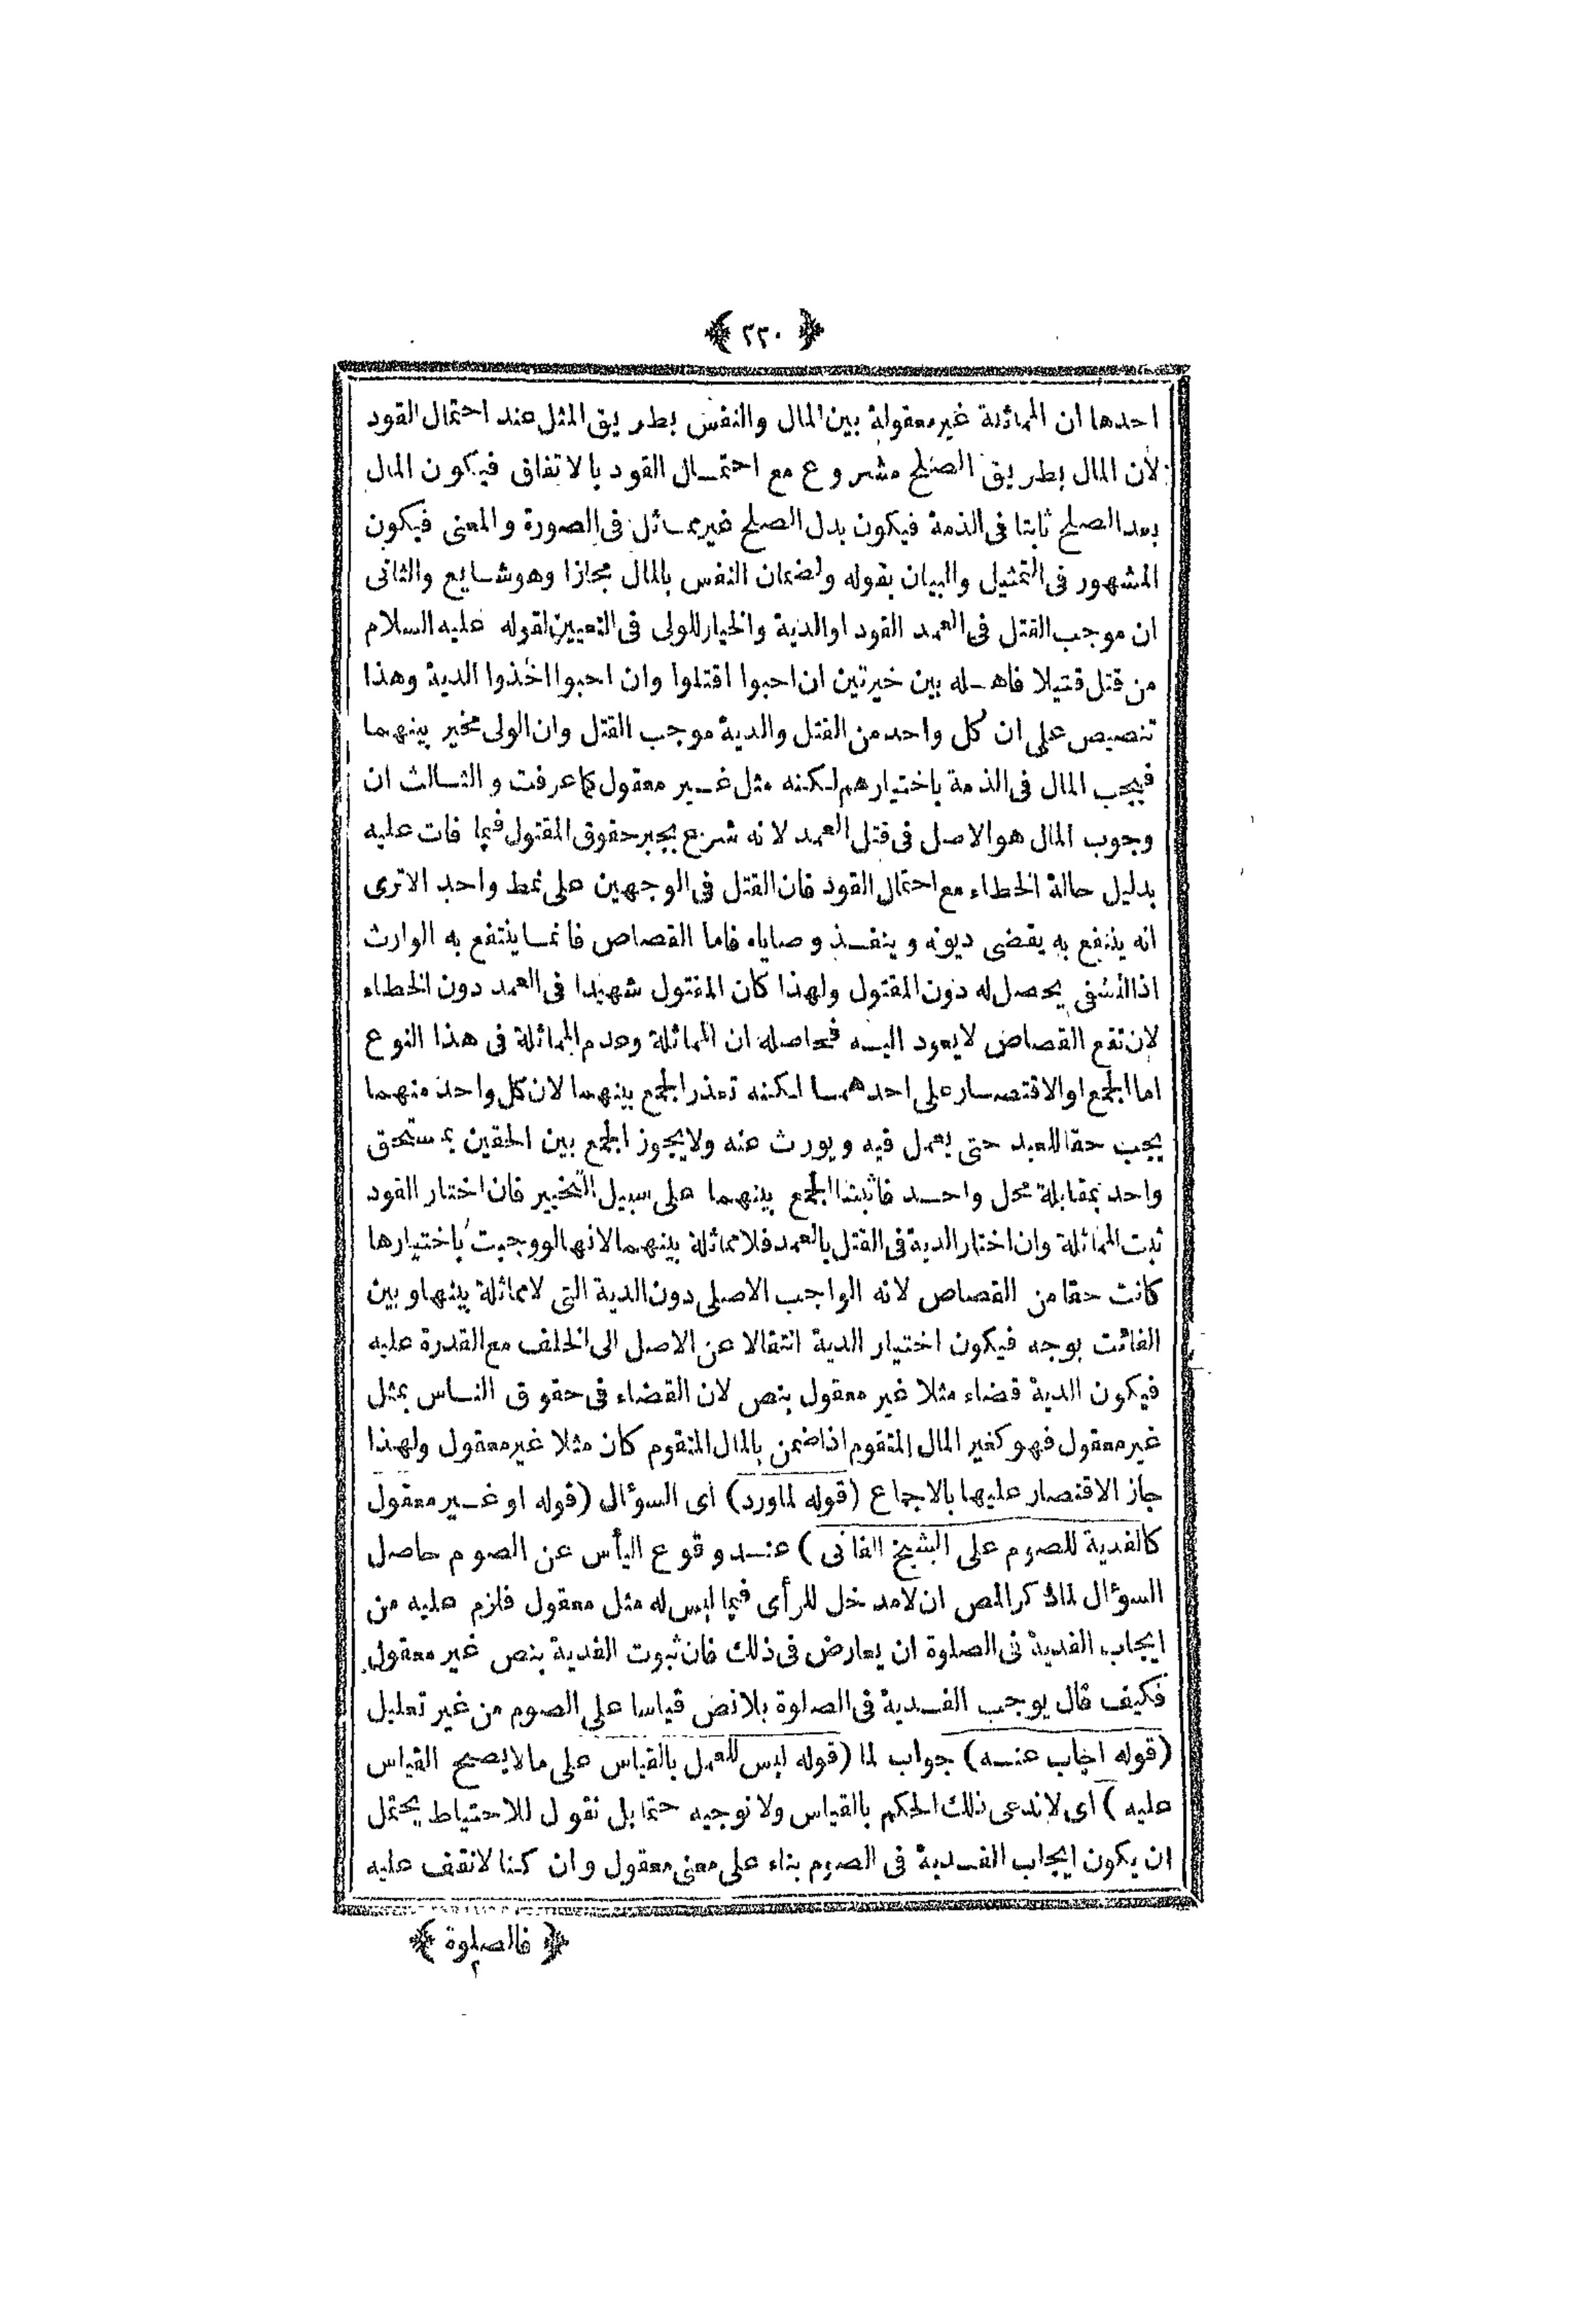 ﴿ ٢٣٠ ﴾
احدها ان المماثلة غير معقولة بين المال والنفس بطريق المثل عند احتمال القود
لأن المال بطريق الصلح مشروع مع احتمال القود بالاتفاق فيكون المال
بعد الصلح ثابتا فى الذمة فيكون بدل الصلح غير مماثل فى الصورة والمعنى فيكون
المشهور فى التمثيل والبيان بقوله ولضمان النفس بالمال مجازا وهو شايع والثانى
ان موجب القتل فى العمد القود او الدية والخيار للولى فى التعيين لقوله عليه السلام
من قتل قتيلا فاهله بين خيرتين ان احبوا اقتلوا وان احبوا اخذوا الدية وهذا
تنصيص على ان كل واحد من القتل والدية موجب القتل وان الولى مخير بينهما
فيجب المال فى الذمة باختيارهم لكنه مثل غير معقول كما عرفت والثالث ان
وجوب المال هو الاصل فى قتل العمد لانه شرع بجبر حقوق المقتول فيما فات عليه
بدليل حالة الخطاء مع احتمال القود فان القتل فى الوجهين على نمط واحد الا ترى
انه ينتفع به يقضى ديونه وينفذ وصاياه فاما القصاص فانما ينتفع به الوارث
اذ التشفى يحصل له دون المقتول ولهذا كان المقتول شهيدا فى العمد دون الخطاء
لان نفع القصاص لا يعود اليه فحاصله ان المماثلة وعدم المماثلة فى هذا النوع
اما الجمع او الاقتصار على احدهما لكنه تعذر الجمع بينهما لان كل واحد منهما
يجب حقا للعبد حتى يعمل فيه ويورث عنه ولا يجوز الجمع بين الحقين بمستحق
واحد بمقابلة محل واحد فاثبتنا الجمع بينهما على سبيل التخيير فان اختار القود
ثبت المماثلة وان اختار الدية فى القتل بالعمد فلا مماثلة بينهما لانها لو وجبت باختيارها
كانت حقا من القصاص لانه الواجب الاصلى دون الدية التى لا مماثلة بينها وبين
الفائت بوجه فيكون اختيار الدية انتقالا عن الاصل الى الخلف مع القدرة عليه
فيكون الدية قضاء مثلا غير معقول بنص لان القضاء فى حقوق الناس بمثل
غير معقول فهو كغير المال المتقوم اذا ضمن بالمال المتقوم كان مثلا غير معقول ولهذا
جاز الاقتصار عليها بالاجماع (قوله لما ورد) اى السؤال (قوله او غير معقول
كالفدية للصوم على الشيخ الفانى) عند وقوع اليأس عن الصوم حاصل
السؤال لما ذكر المص ان لا مدخل للرأى فيما ليس له مثل معقول فلزم عليه من
ايجاب الفدية فى الصلوة ان يعارض فى ذلك فان ثبوت الفدية بنص غير معقول
فكيف قال يوجب الفدية فى الصلوة بلا نص قياسا على الصوم من غير تعليل
(قوله اجاب عنه) جواب لما (قوله ليس للعمل بالقياس على ما لا يصح القياس
عليه) اى لا ندعى ذلك الحكم بالقياس ولا نوجبه حتما بل نقول للاحتياط يحتمل
ان يكون ايجاب الفدية فى الصوم بناء على معنى معقول وان كنا لا نقف عليه
﴿ فالصلوة ﴾